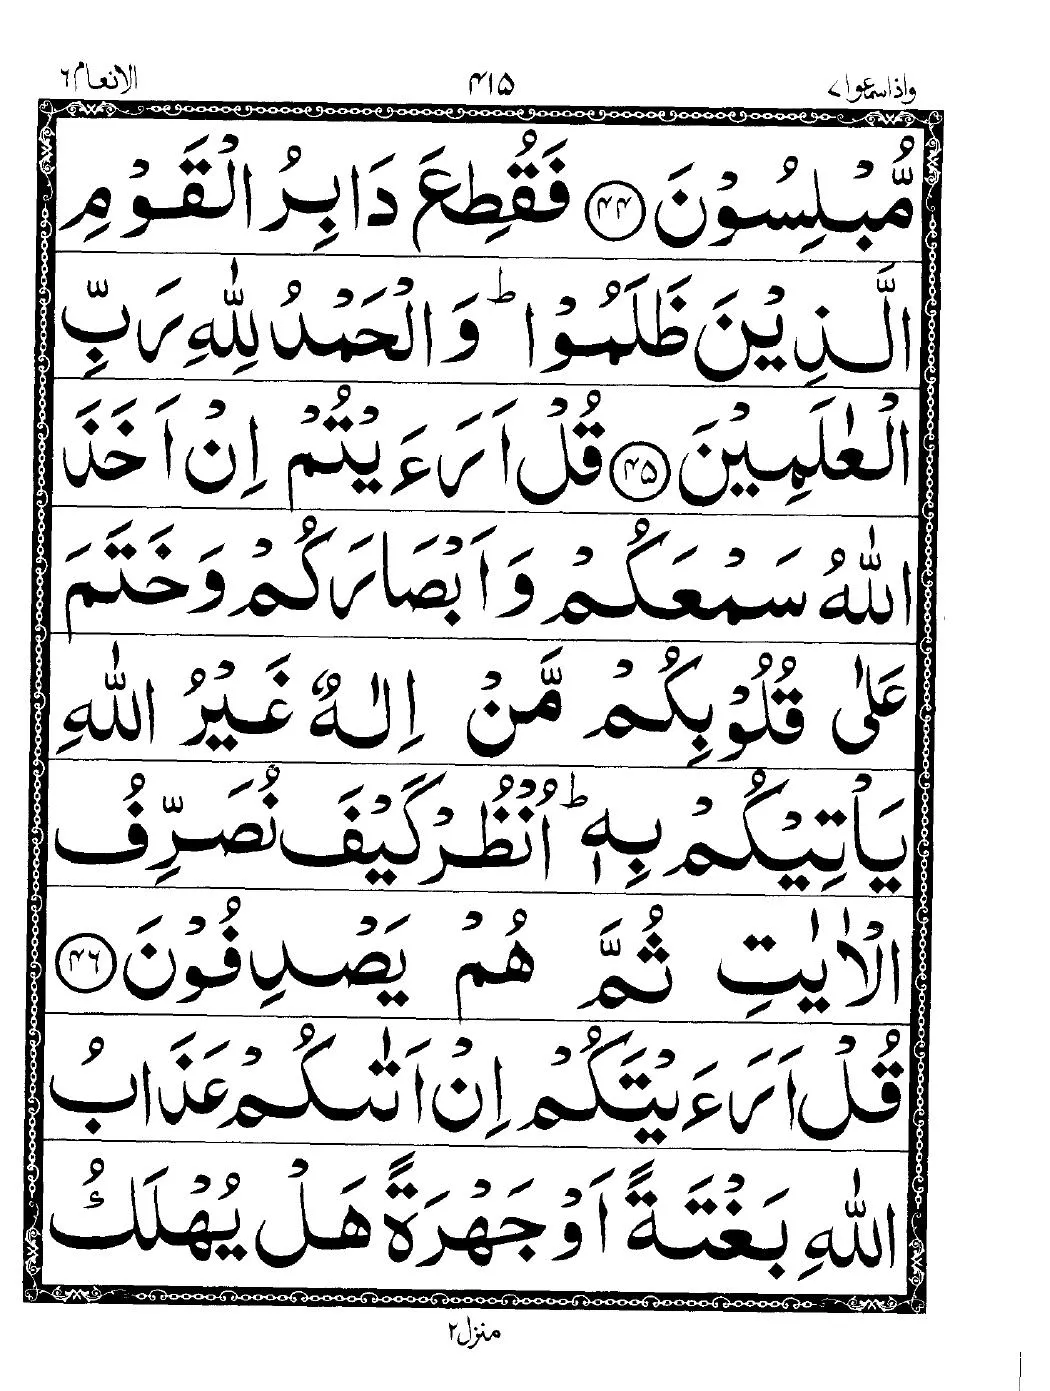 واذاسمعوا ٧ ۴۱۵ الانعام ٦
مُّبْلِسُوْنَ ﴿۴۴﴾ فَقُطِعَ دَابِرُ الْقَوْمِ
الَّذِيْنَ ظَلَمُوْا ؕ وَالْحَمْدُ لِلّٰهِ رَبِّ
الْعٰلَمِيْنَ ﴿۴۵﴾ قُلْ اَرَءَيْتُمْ اِنْ اَخَذَ
اللّٰهُ سَمْعَكُمْ وَاَبْصَارَكُمْ وَخَتَمَ
عَلٰى قُلُوْبِكُمْ مَّنْ اِلٰهٌ غَيْرُ اللّٰهِ
يَاْتِيْكُمْ بِهٖ ؕ اُنْظُرْ كَيْفَ نُصَرِّفُ
الْاٰيٰتِ ثُمَّ هُمْ يَصْدِفُوْنَ ﴿۴۶﴾
قُلْ اَرَءَيْتَكُمْ اِنْ اَتٰىكُمْ عَذَابُ
اللّٰهِ بَغْتَةً اَوْ جَهْرَةً هَلْ يُهْلَكُ
منزل ۲